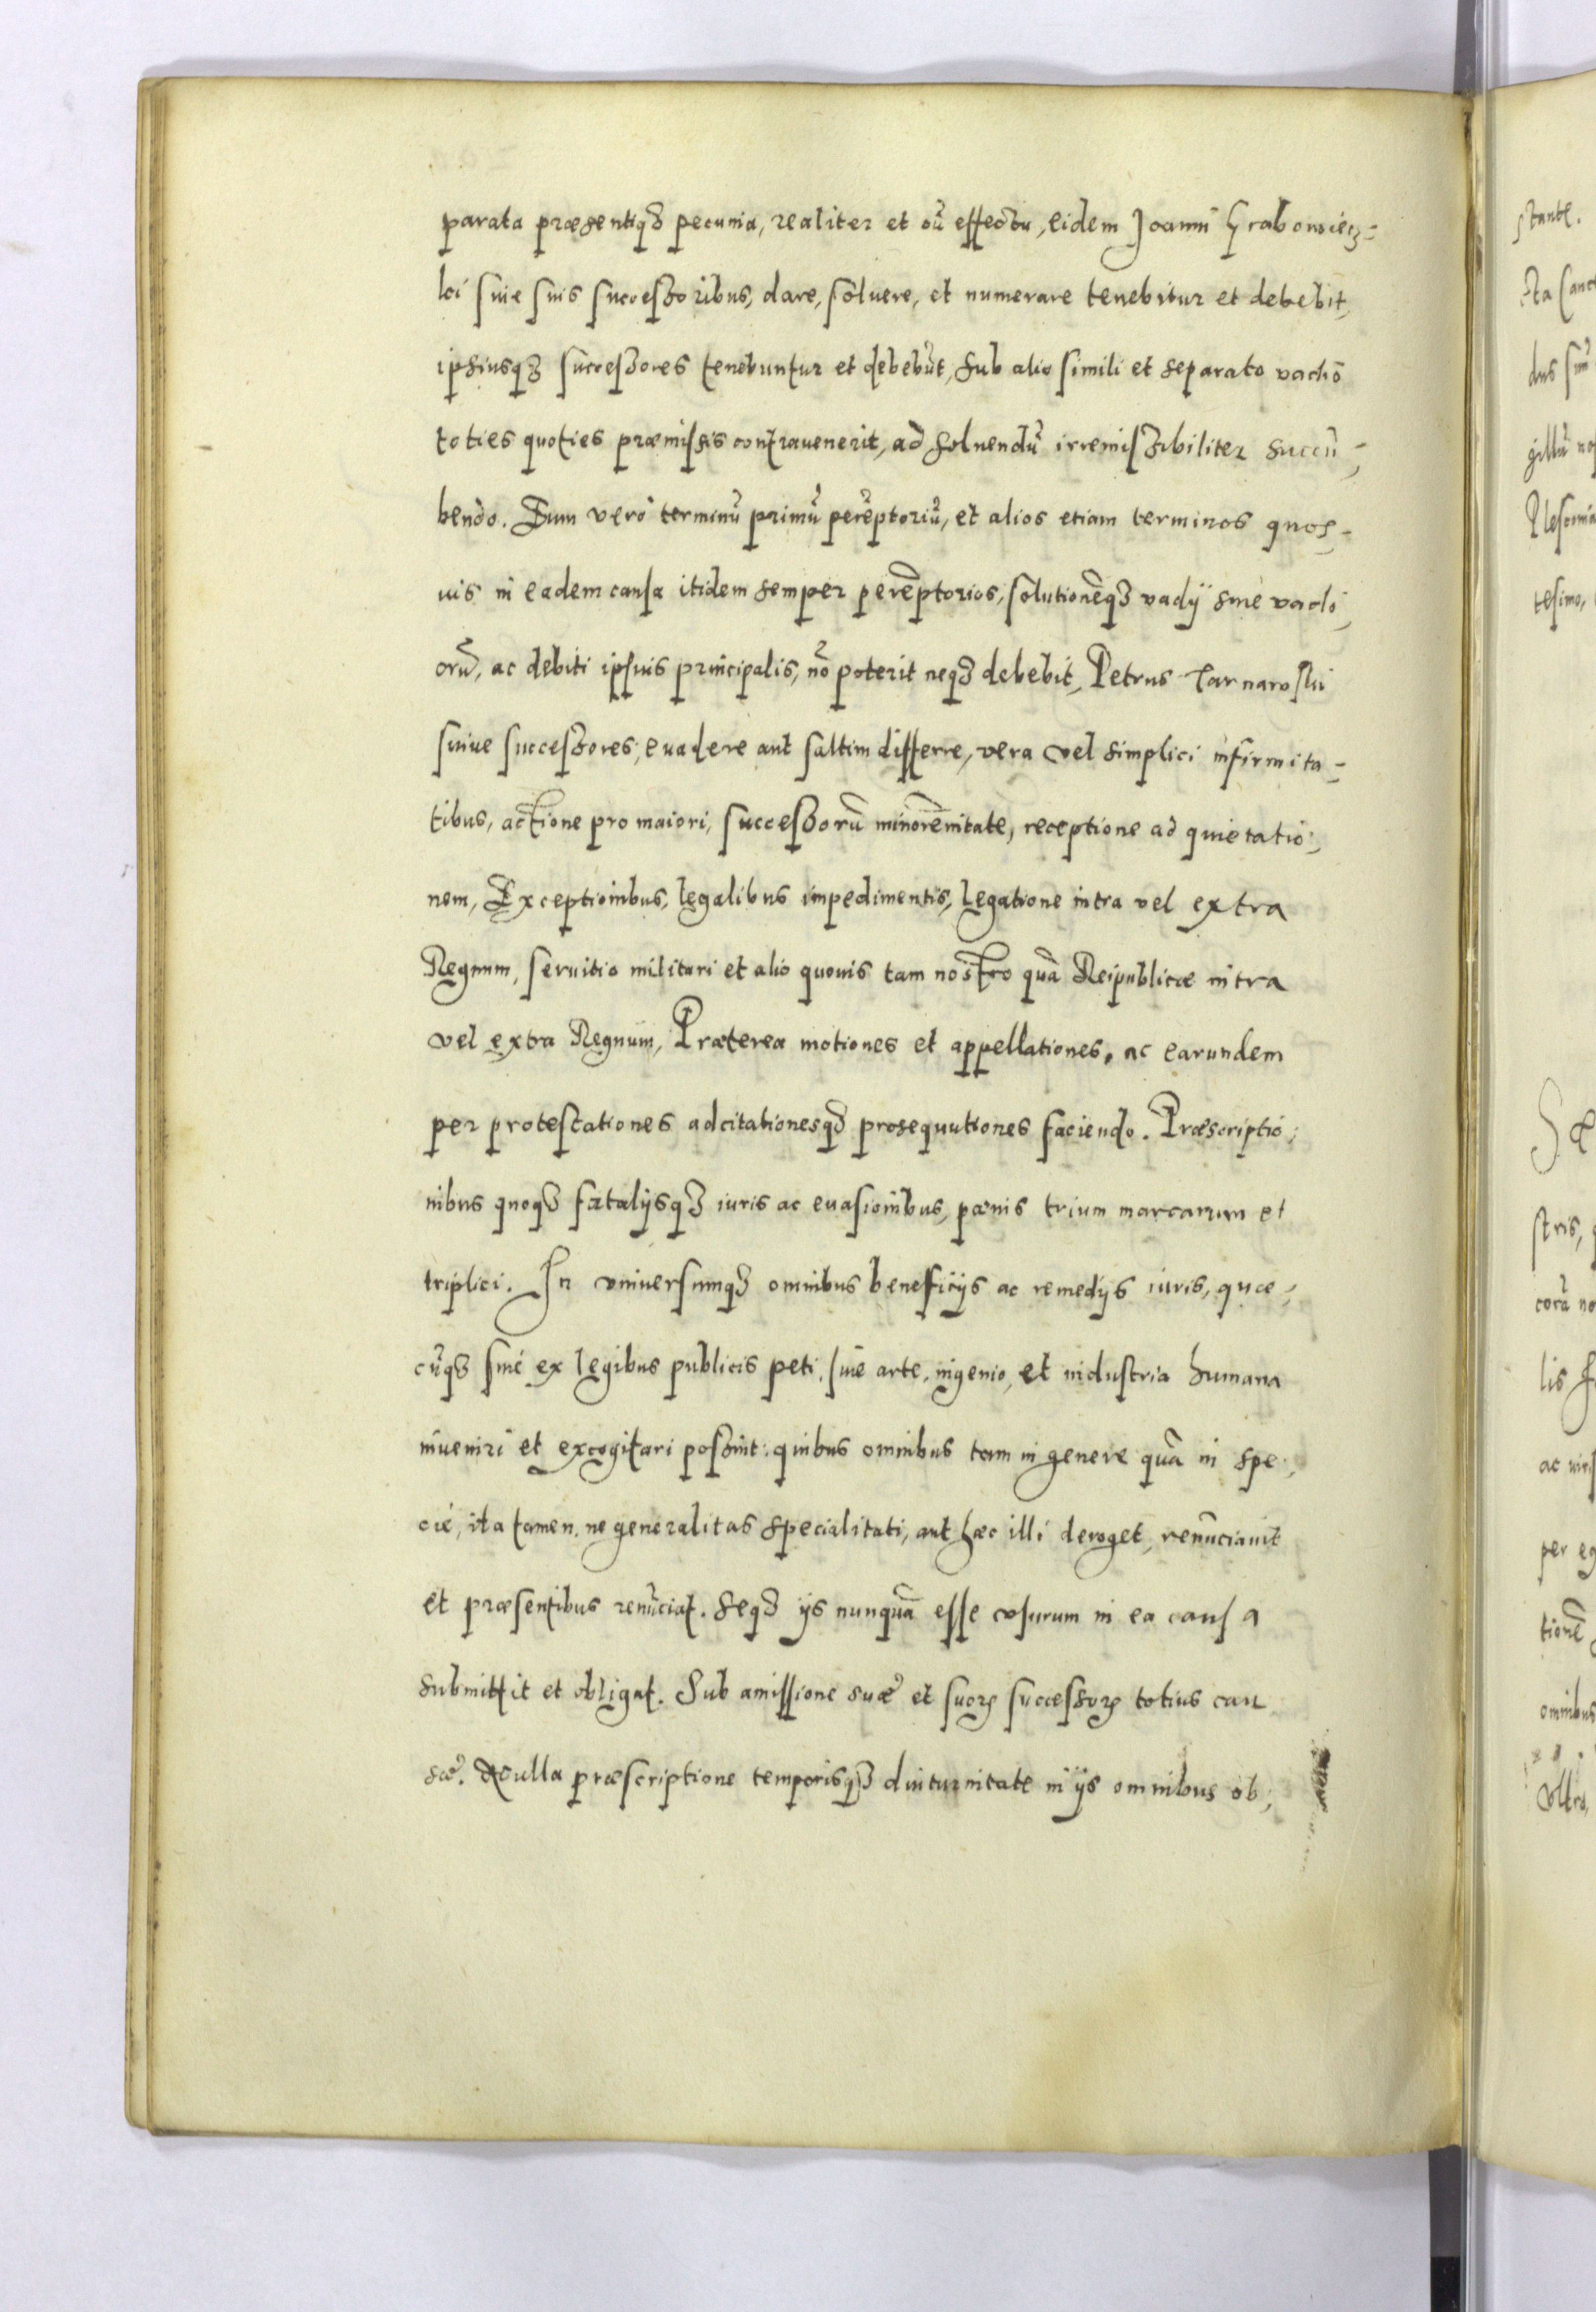 parata præsentiqȝ pecunia, realiter et cū effectu, eidem Joanni Grabowiec-
ki siue suis successoribus, dare, soluere, et numerare tenebitur et debebit,
ipsiusqȝ successores tenebuntur et debebūt, sub alio simili et separato vadio
toties quoties præmissis contrauenerit, ad soluendū irremissibiliter succū-
bendo. Eum vero terminū primū perēptoriū, et alios etiam terminos quos-
uis in eadem causa itidem semper perēptorios, solutionēqȝ vadij siue vadi-
orū, ac debiti ipsius principalis, nō poterit neqȝ debebit, Petrus Tarnawski
suiue successores, euadere aut saltim differre, vera vel simplici infirmita-
tibus, actione pro maiori, successorū minorēnitate, receptione ad quietatio-
nem, Exceptionibus, legalibus impedimentis, legatione intra vel extra
Regnum, seruitio militari et alio quouis tam nostro quā Reipublicæ intra
vel extra Regnum, Præterea motiones et appellationes, ac earundem
per protestationes adcitationesqȝ prosequutiones faciendo. Præscriptio-
nibus quoqȝ fatalijsqȝ iuris ac euasionibus, pænis trium marcarum et
triplici. In vniuersumqȝ omnibus beneficijs ac remedijs iuris, quæ-
cūqȝ siue ex legibus publicis peti, siue arte, ingenio, et industria humana
inueniri et excogitari possint: quibus omnibus tam in genere quā in spe-
cie, ita tamen, ne generalitas specialitati, aut hæc illi deroget, renūciauit
et præsentibus renūciat. Seqȝ ijs nunquā esse vsurum in ea causa
submittit et obligat. Sub amissione suæ et suorꝝ successorꝝ totius cau
sæ. Nulla præscriptione temporisqȝ diuturnitate in ijs omnibus ob-
stante.
tesimo,
stris,
corā no
lis
per
tionē
omnibus
vltra,